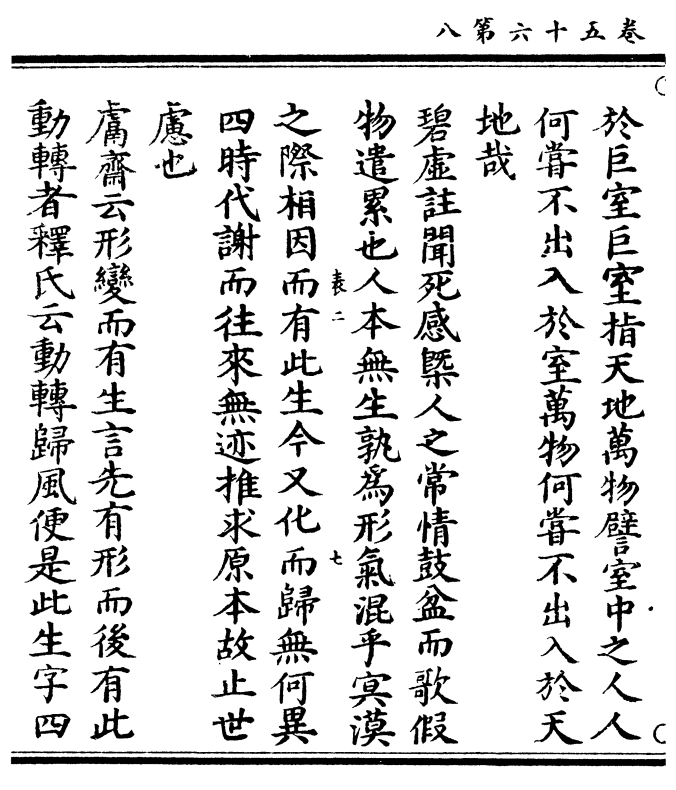 卷五十六第八
於巨室巨室指天地萬物譬室中之人人
何嘗不出入於室萬物何嘗不出入於天
地哉
碧虛註聞死感槩人之常情鼓盆而歌假
物遣累也人本無生孰為形氣混乎冥漠
袁二
七
之際相因而有此生今又化而歸無何異
四時代謝而往來無迹推求原本故止世
慮也
鬳齋云形變而有生言先有形而後有此
動轉者釋氏云動轉歸風便是此生字四